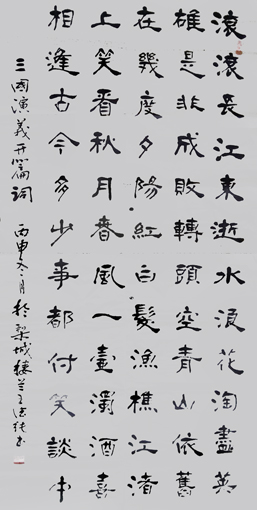 滾滾長江東逝水浪花淘盡英
雄是非成敗轉頭空青山依舊
在幾度夕陽紅白髮漁樵江渚
上笑看秋月春風一壺濁酒喜
相逢古今多少事都付笑談中
三國演義开篇词 丙申冬月於梨城